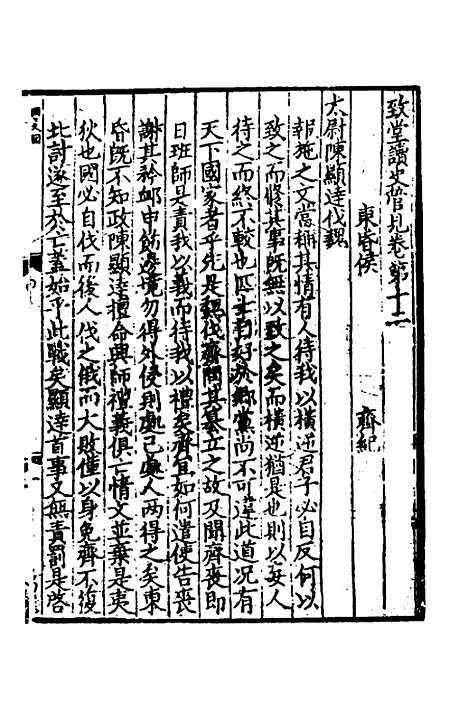 致堂讀史管見卷第十二
東昏侯　齊紀
太尉陳顯達伐魏
報施之文當稱其情有人待我以橫逆君子必自反何以
致之而將其事旣無以致之矣而橫逆猶是也則以妄人
待之而終不較也匹士有好於鄉黨尚不可蹕此道况有
天下國家者乎先是魏伐齊問其墓立之故及聞齊喪即
日班師是責我以義而待我以禮矣齊宜如何遣使告喪
謝其矜䘏申飭邊境勿得外侵則處己處人兩得之矣東
昏旣不知政陳顯達擅命興師禮義俱亡情文並棄是夷
狄也國必自伐而後人伐之俄而大敗僅以身免齊不復
北討遂至於亡蓋始乎此職矣顯達首事又無責罰是啓